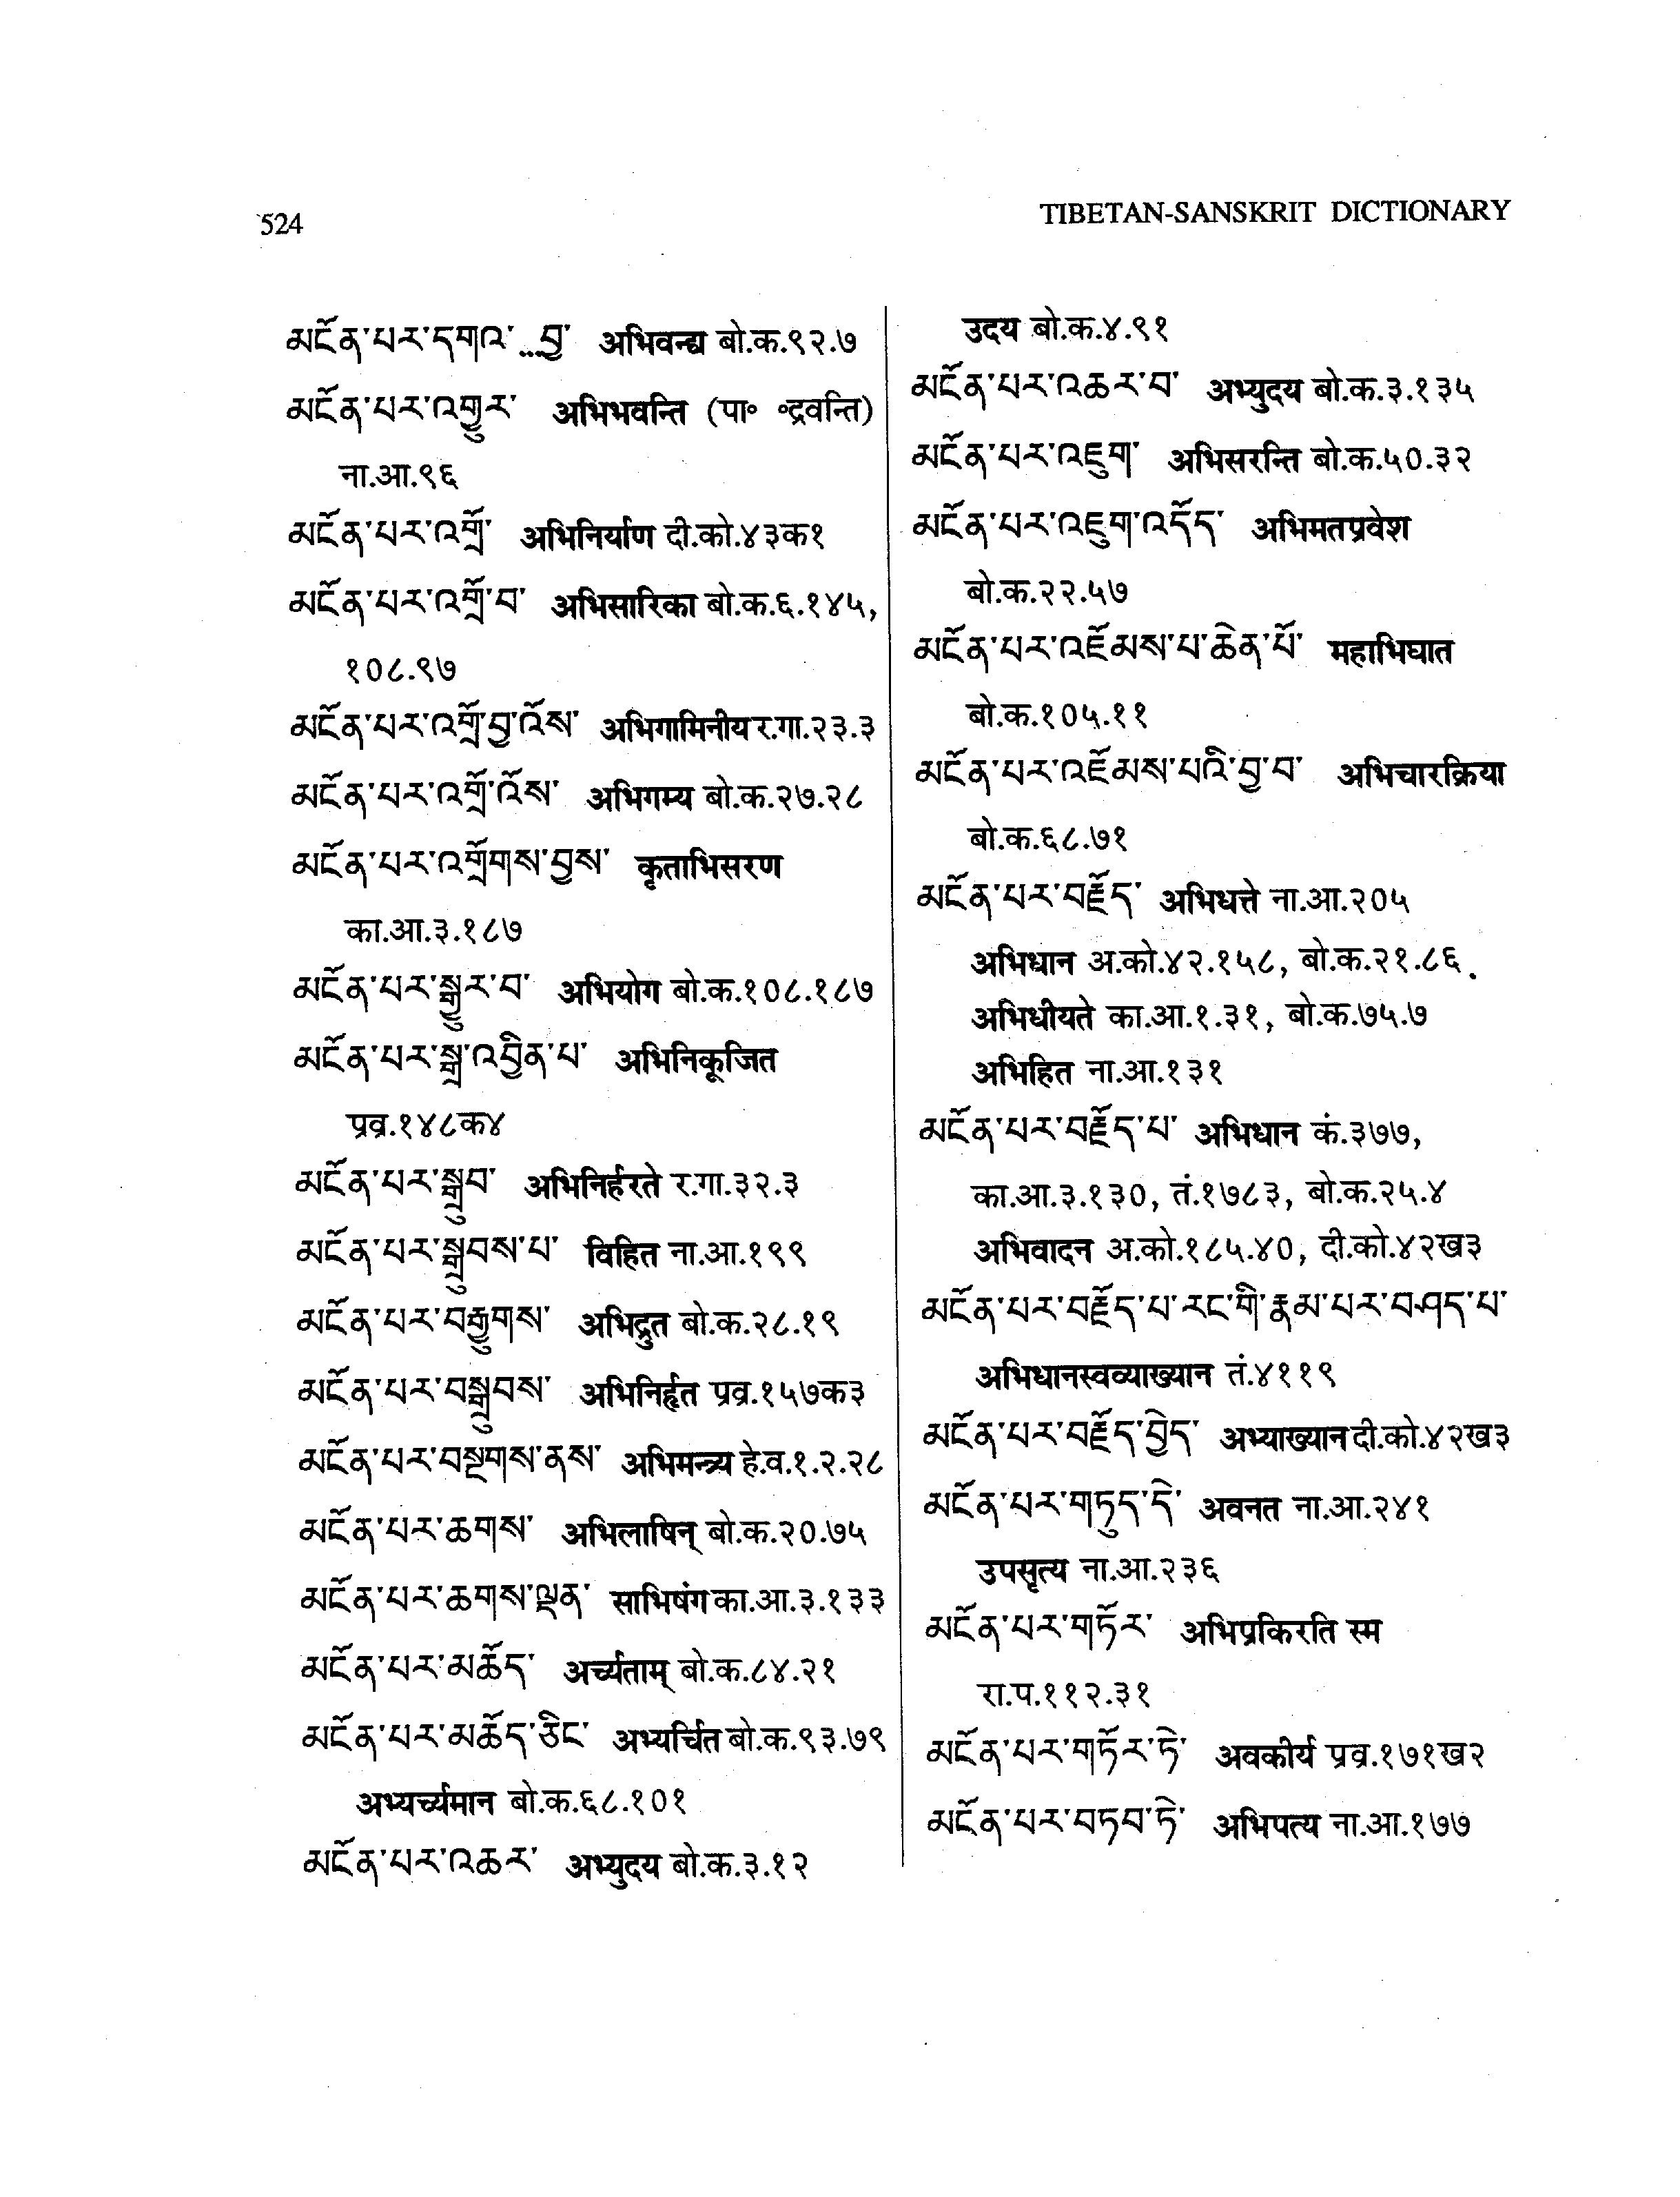 524
TIBETAN-SANSKRIT DICTIONARY
མངོན་པར་དགའ་...བྱ་ अभिवन्द्य बो.क.९२.७
མངོན་པར་འགྱུར་ अभिभवन्ति (पा० ०द्रवन्ति)
ना.आ.९६
མངོན་པར་འགྲོ་ अभिनिर्याण दी.को.४३क१
མངོན་པར་འགྲོ་བ་ अभिसारिका बो.क.६.१४५,
१०८.९७
མངོན་པར་འགྲོ་བྱ་འོས་ अभिगामिनीय र.गा.२३.३
མངོན་པར་འགྲོ་འོས་ अभिगम्य बो.क.२७.२८
མངོན་པར་འགྲོགས་བྱས་ कृताभिसरण
का.आ.३.१८७
མངོན་པར་སྦྱར་བ་ अभियोग बो.क.१०८.१८७
མངོན་པར་སྒྲ་འབྱིན་པ་ अभिनिकूजित
प्रव्र.१४८क४
མངོན་པར་སྒྲུབ་ अभिनिर्हरते र.गा.३२.३
མངོན་པར་སྒྲུབས་པ་ विहित ना.आ.१९९
མངོན་པར་བརྒྱུགས་ अभिद्रुत बो.क.२८.१९
མངོན་པར་བསྒྲུབས་ अभिनिर्हृत प्रव्र.१५७क३
མངོན་པར་བསྔགས་ནས་ अभिमन्त्र्य हे.व.१.२.२८
མངོན་པར་ཆགས་ अभिलाषिन् बो.क.२०.७५
མངོན་པར་ཆགས་ལྡན་ साभिषंग का.आ.३.१३३
མངོན་པར་མཆོད་ अर्च्यताम् बो.क.८४.२१
མངོན་པར་མཆོད་ཅིང་ अभ्यर्चित बो.क.९३.७९
अभ्यर्च्यमान बो.क.६८.१०१
མངོན་པར་འཆར་ अभ्युदय बो.क.३.१२
उदय बो.क.४.९१
མངོན་པར་འཆར་བ་ अभ्युदय बो.क.३.१३५
མངོན་པར་འཇུག་ अभिसरन्ति बो.क.५०.३२
མངོན་པར་འཇུག་འདོད་ अभिमतप्रवेश
बो.क.२२.५७
མངོན་པར་འཇོམས་པ་ཆེན་པོ་ महाभिघात
बो.क.१०५.११
མངོན་པར་འཇོམས་པའི་བྱ་བ་ अभिचारक्रिया
बो.क.६८.७१
མངོན་པར་བརྗོད་ अभिधत्ते ना.आ.२०५
अभिधान अ.को.४२.१५८, बो.क.२१.८६.
अभिधीयते का.आ.१.३१, बो.क.७५.७
अभिहित ना.आ.१३१
མངོན་པར་བརྗོད་པ་ अभिधान कं.३७७,
का.आ.३.१३०, तं.१७८३, बो.क.२५.४
अभिवादन अ.को.१८५.४०, दी.को.४२ख३
མངོན་པར་བརྗོད་པ་རང་གི་རྣམ་པར་བཤད་པ་
अभिधानस्वव्याख्यान तं.४११९
མངོན་པར་བརྗོད་བྱེད་ अभ्याख्यान दी.को.४२ख३
མངོན་པར་གཏུད་དེ་ अवनत ना.आ.२४१
उपसृत्य ना.आ.२३६
མངོན་པར་གཏོར་ अभिप्रकिरति स्म
रा.प.११२.३१
མངོན་པར་གཏོར་ཏེ་ अवकीर्य प्रव्र.१७१ख२
མངོན་པར་བཏབ་ཏེ་ अभिपत्य ना.आ.१७७